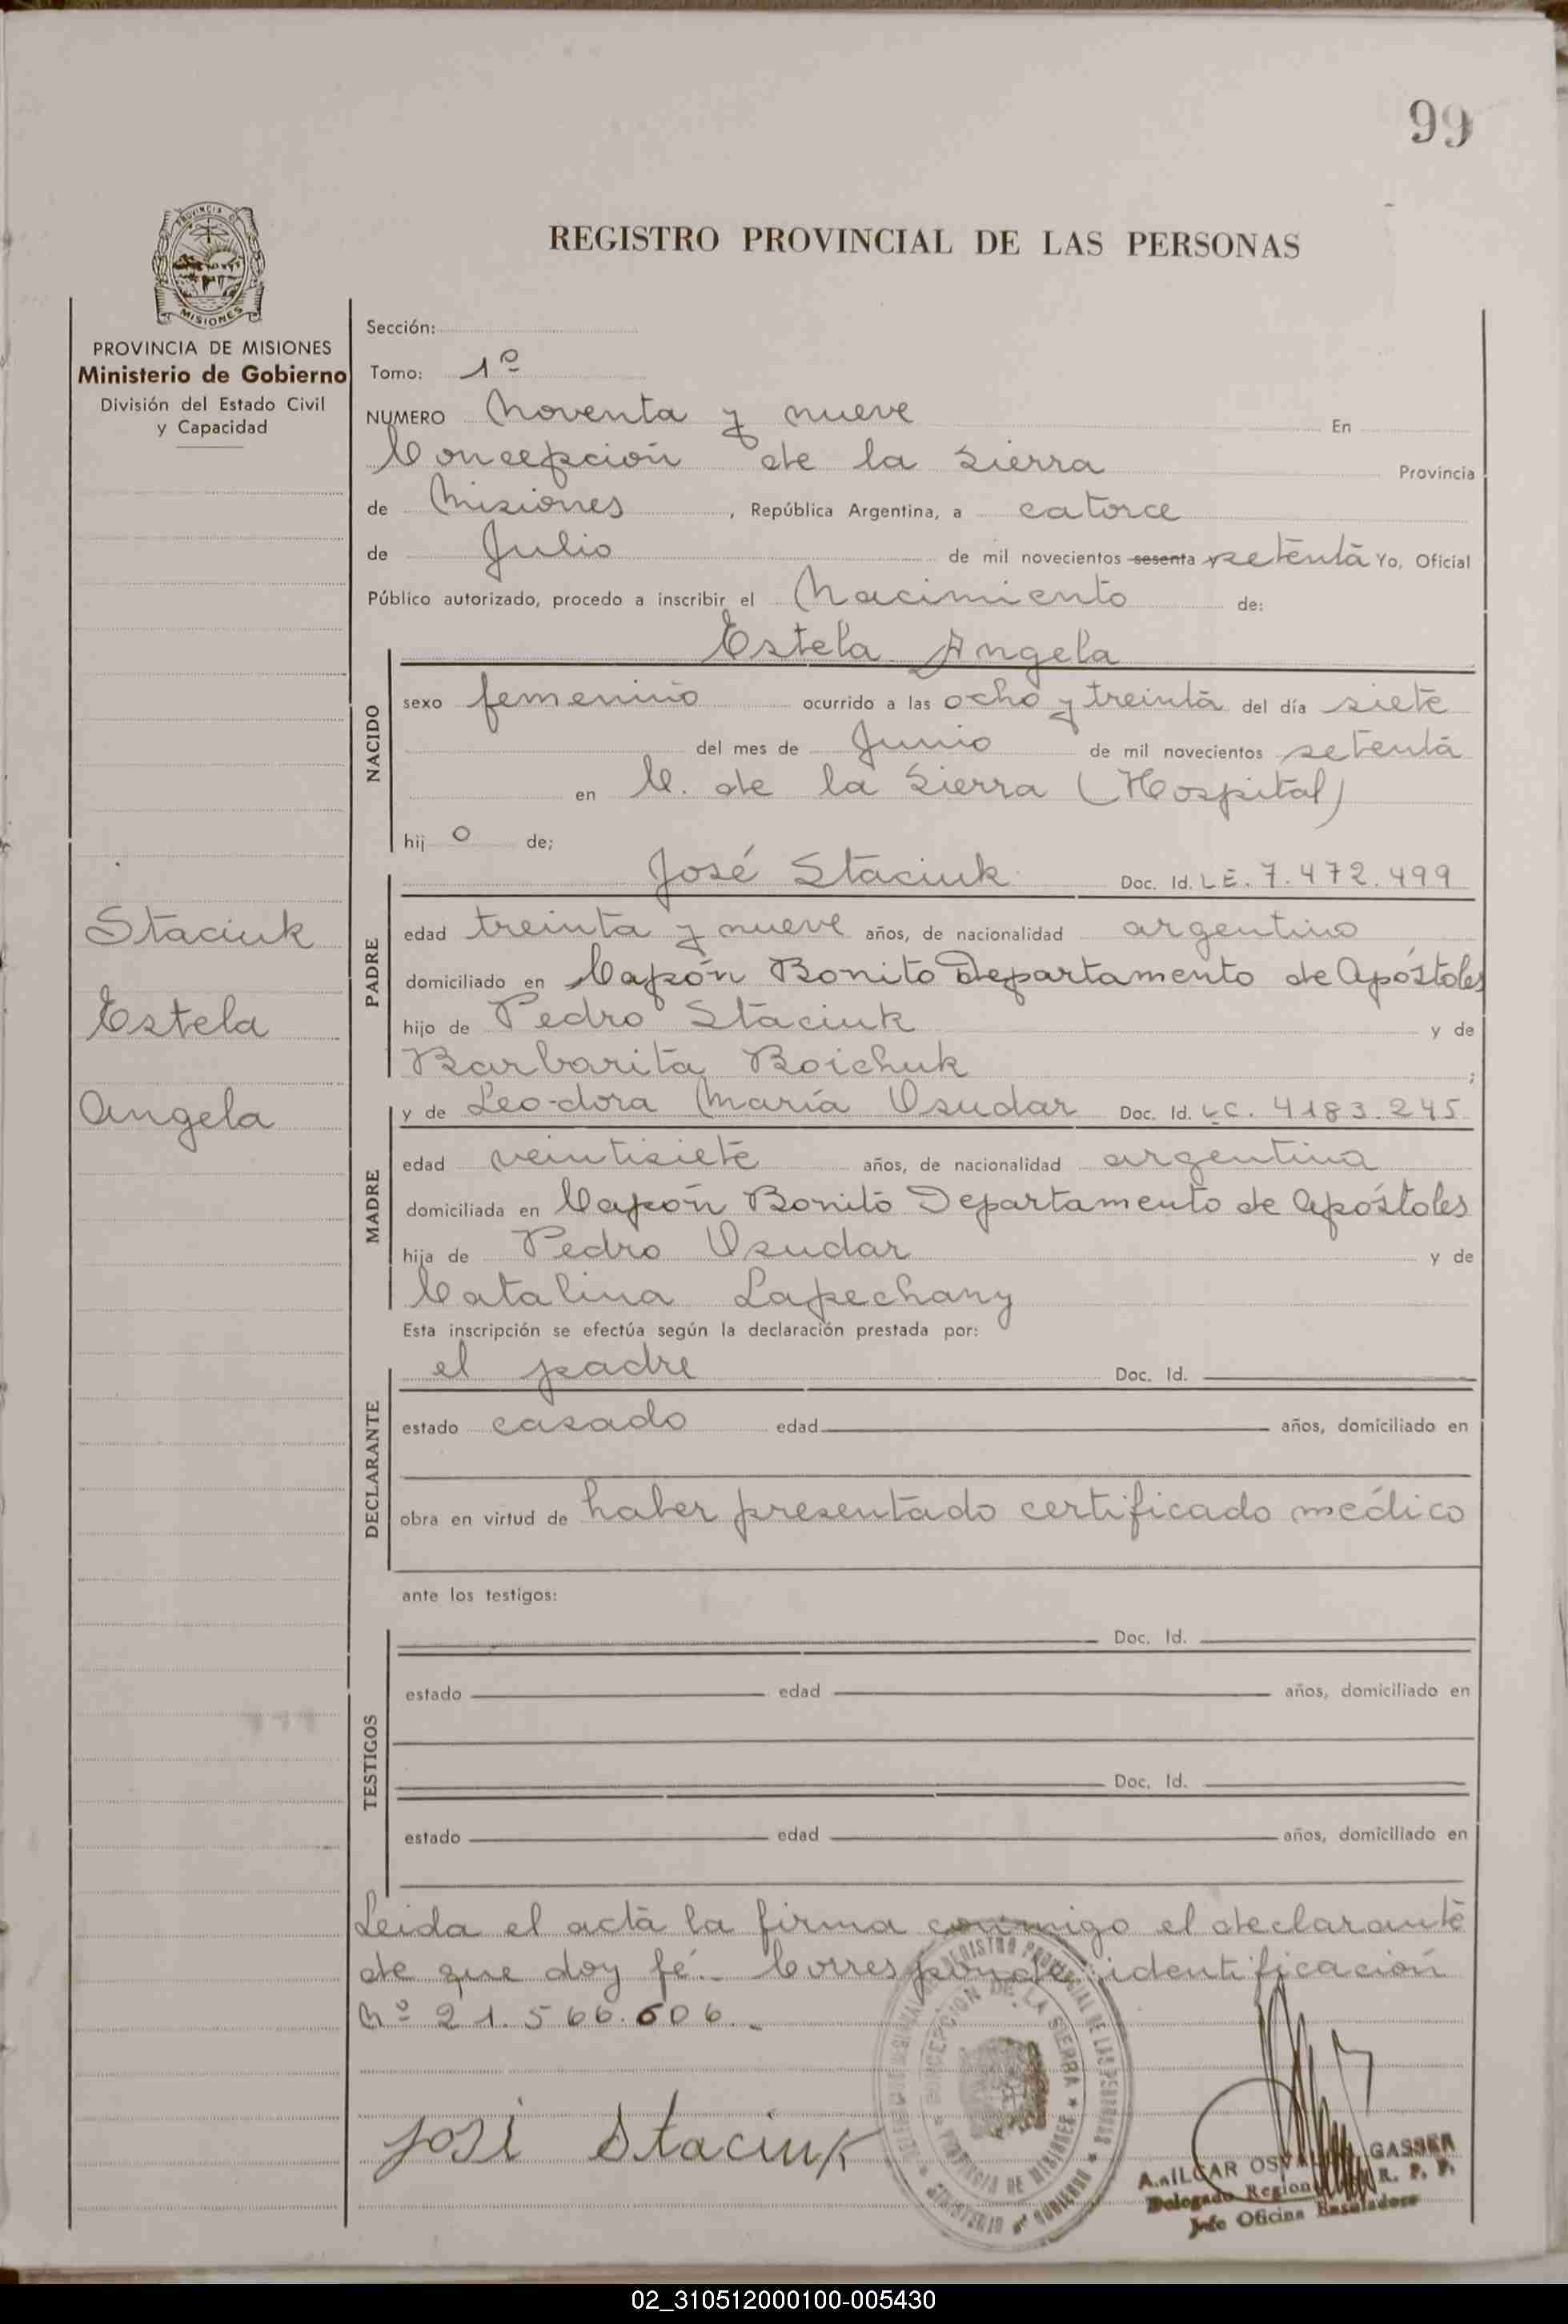 99
REGISTRO PROVINCIAL DE LAS PERSONAS
PROVINCIA DE MISIONES
Ministerio de Gobierno
División del Estado Civil
y Capacidad
Staciuk
Estela
Angela
Sección:
Tomo: 1º
NUMERO Noventa y nueve En
Concepción de la Sierra Provincia
de Misiones, República Argentina, a catorce
de Julio de mil novecientos sesenta setenta Yo, Oficial
Público autorizado, procedo a inscribir el Nacimiento de:
Estela Angela
NACIDO
sexo femenino ocurrido a las ocho y treinta del día siete
del mes de Junio de mil novecientos setenta
en C. de la Sierra (Hospital)
hij o de;
PADRE
José Staciuk Doc. Id. L E. 7.472.499
edad treinta y nueve años, de nacionalidad argentino
domiciliado en Capón Bonito Departamento de Apóstoles
hijo de Pedro Staciuk y de
Barbarita Boichuk ;
MADRE
y de Leodora María Osudar Doc. Id. L C. 4183.245
edad veintisiete años, de nacionalidad argentina
domiciliada en Capón Bonito Departamento de Apóstoles
hija de Pedro Osudar y de
Catalina Lapechany
Esta inscripción se efectúa según la declaración prestada por:
DECLARANTE
el padre Doc. Id.
estado casado edad años, domiciliado en
obra en virtud de haber presentado certificado médico
ante los testigos:
TESTIGOS
Doc. Id.
estado edad años, domiciliado en
Doc. Id.
estado edad años, domiciliado en
Leida el acta la firma conmigo el declarante
de que doy fé. Corresponde identificación
Nº 21.566.606.-
José Staciuk
REGISTRO PROVINCIAL DE LAS PERSONAS
CONCEPCION DE LA SIERRA
PROVINCIA DE MISIONES
MINISTERIO DE GOBIERNO
GASSER
Delegado Regional R. P. P.
Jefe Oficina
02_310512000100-005430